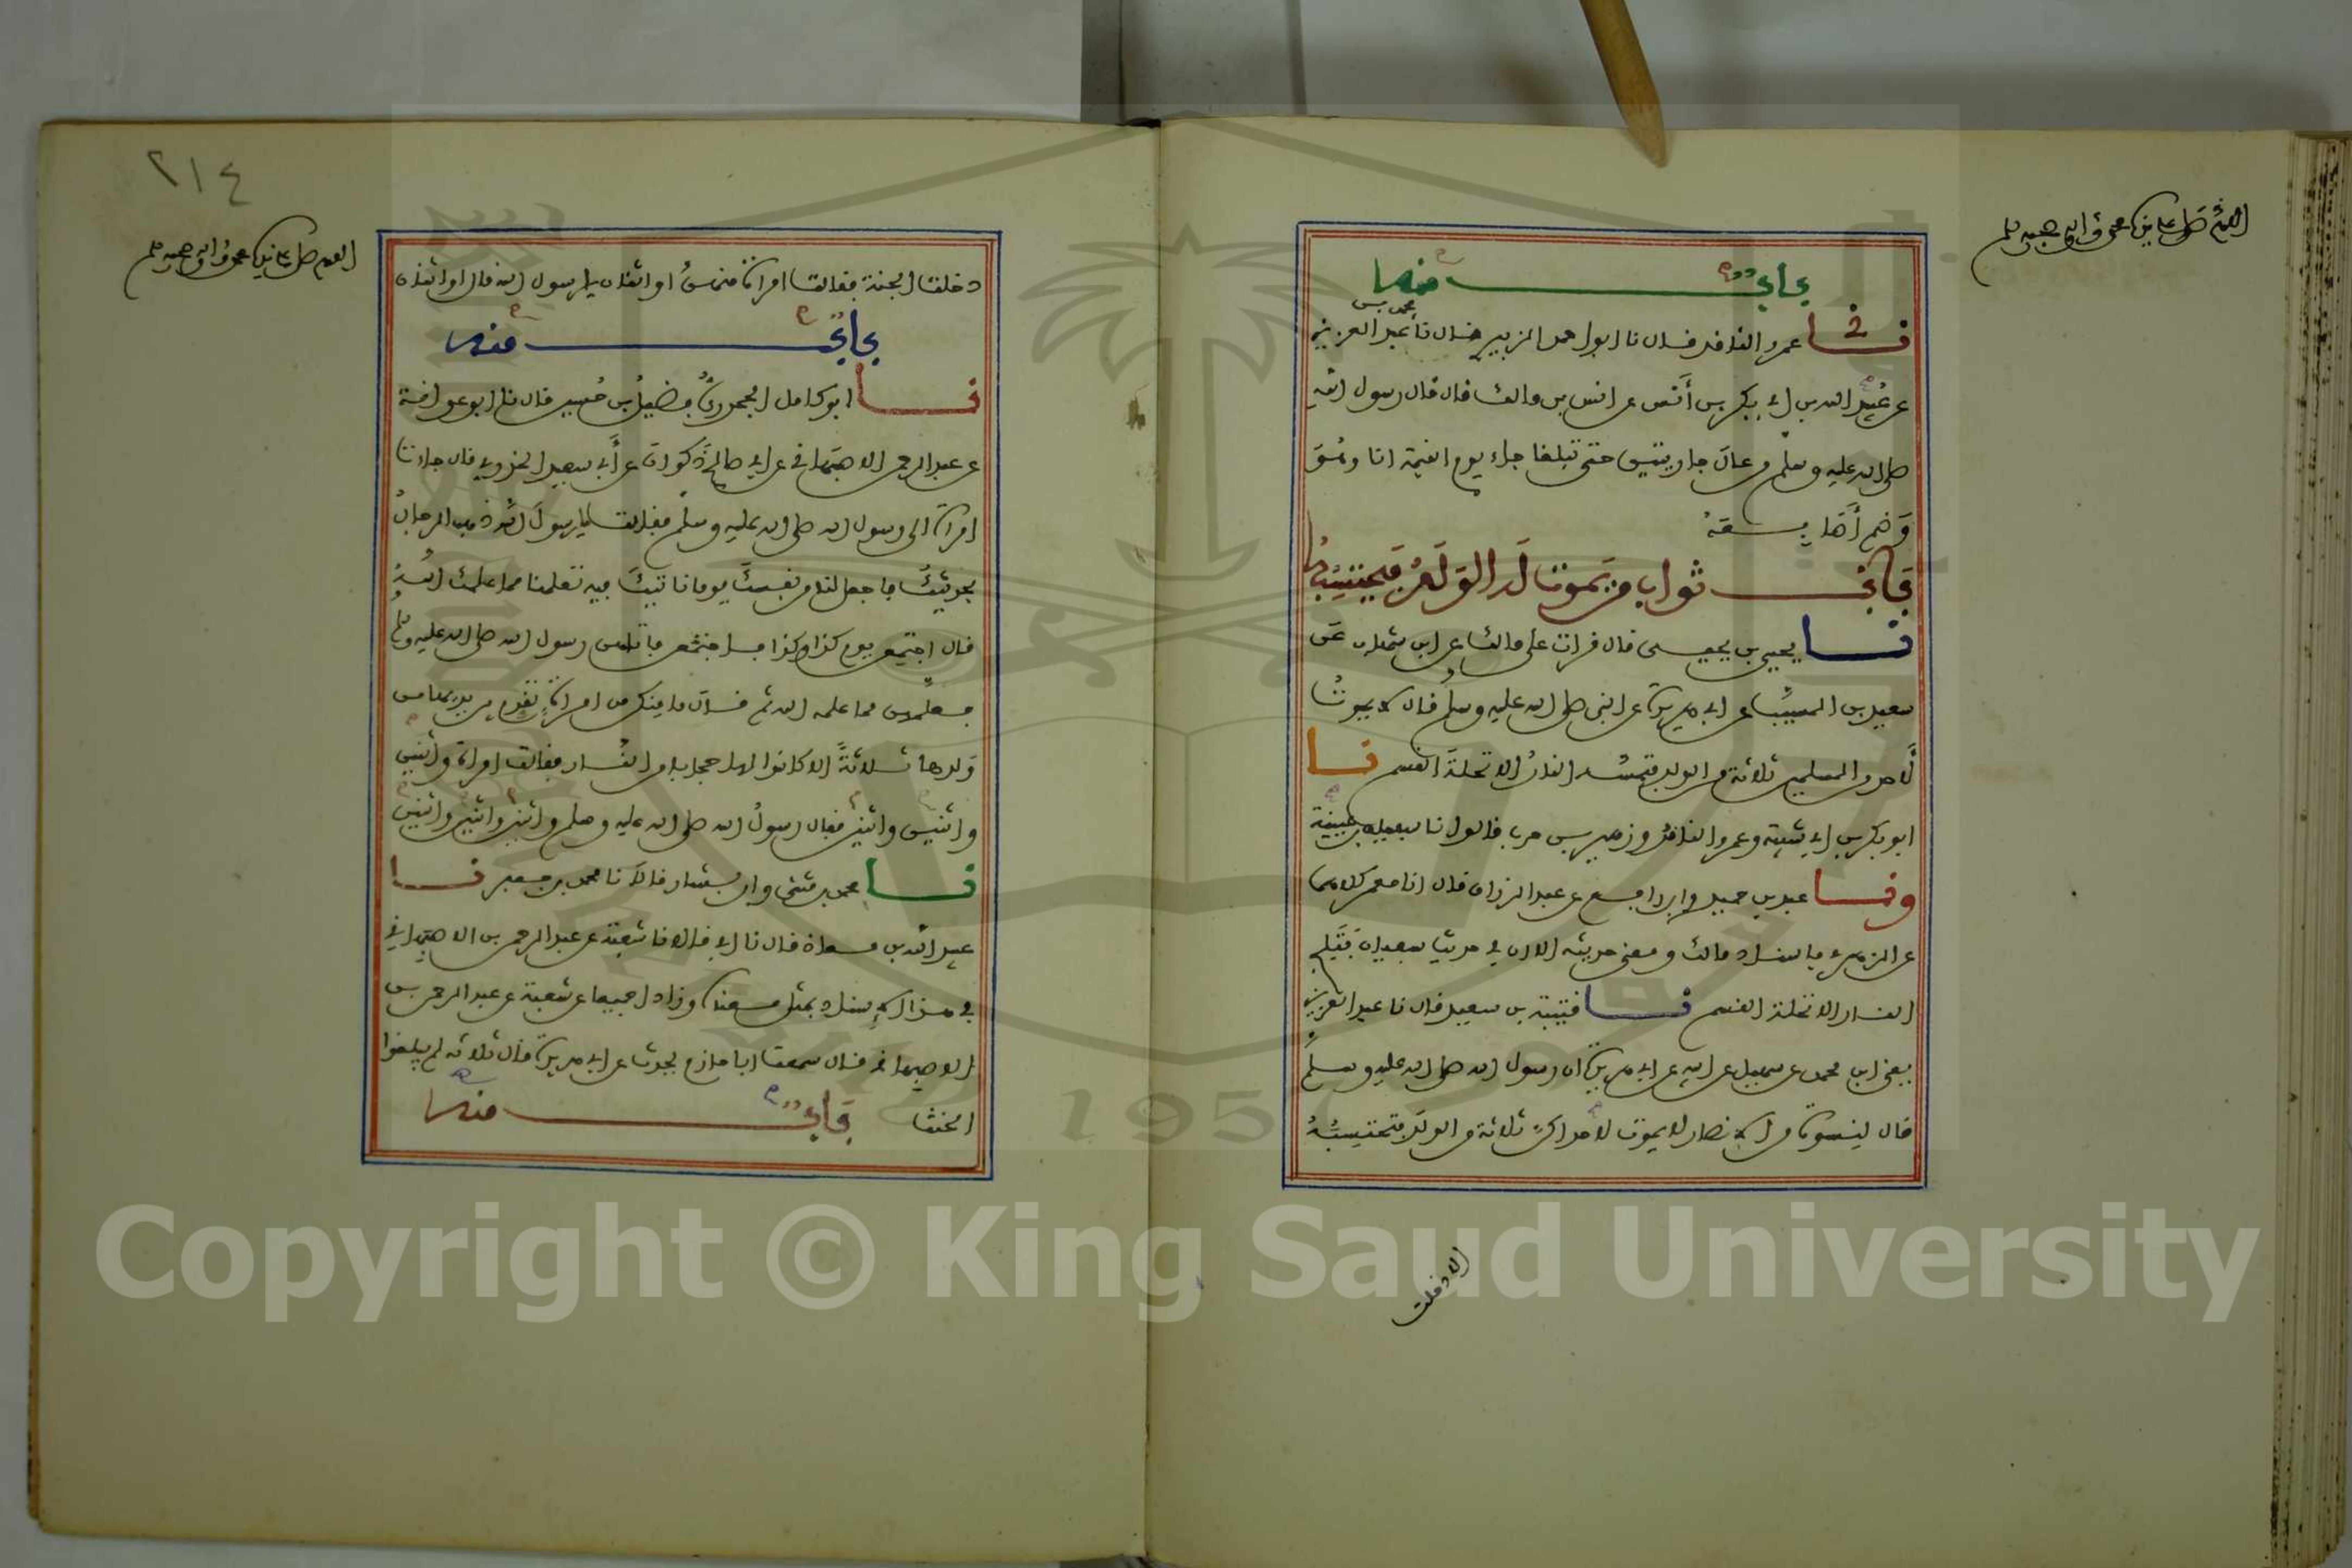 اللهم صل على نبينا محمد وآله وصحبه وسلم
باب منه
نا عمرو الناقد قال نا ابو احمد الزبير قال نا محمد بن عبد العزيز
عن عبيد الله بن ابي بكر بن أنس عن انس بن مالك قال قال رسول الله
صلى الله عليه وسلم من عال جاريتين حتى تبلغا جاء يوم القيمة انا وهو
وضم أصابعه
باب ثواب من يموت له الولد فيحتسبه
نا يحيى بن يحيى قال قرات على مالك عن ابن شهاب عن
سعيد بن المسيب عن ابي هريرة عن النبي صلى الله عليه وسلم قال لا يموت
لأحد من المسلمين ثلاثة من الولد فتمسه النار الا تحلة القسم نا
ابو بكر بن ابي شيبة وعمرو الناقد وزهير بن حرب قالوا نا سفيان بن عيينة
ونا عبد بن حميد وابن رافع عن عبد الرزاق قال انا معمر كلاهما
عن الزهري باسناد مالك ومعنى حديثه الا ان في حديث سفيان فيلج
النار الا تحلة القسم نا قتيبة بن سعيد قال نا عبد العزيز
يعني ابن محمد عن سهيل عن ابيه عن ابي هريرة ان رسول الله صلى الله عليه وسلم
قال لنسوة من الانصار لا يموت لاحداكن ثلاثة من الولد فتحتسبه
الا دخلت
٢١٤
اللهم صل على نبينا محمد وآله وصحبه وسلم
دخلت الجنة فقالت امراة منهن او اثنان يا رسول الله قال او اثنان
باب منه
نا ابو كامل الجحدري فضيل بن حسين قال نا ابو عوانة
عن عبد الرحمن الاصبهاني عن ابي صالح ذكوان عن أبي سعيد الخدري قال جاءت
امراة الى رسول الله صلى الله عليه وسلم فقالت يا رسول الله ذهب الرجال
بحديثك فاجعل لنا من نفسك يوما ناتيك فيه تعلمنا مما علمك الله
قال اجتمعن يوم كذا وكذا فاجتمعن فاتاهن رسول الله صلى الله عليه وسلم
فعلمهن مما علمه الله ثم قال ما منكن من امراة تقدم بين يديها من
ولدها ثلاثة الا كانوا لها حجابا من النار فقالت امراة واثنين
واثنين واثنين فقال رسول الله صلى الله عليه وسلم واثنين واثنين واثنين
نا محمد بن مثنى وابن بشار قالا نا محمد بن جعفر نا
عبيد الله بن معاذ قال نا ابي قالا نا شعبة عن عبد الرحمن بن الاصبهاني
في هذا الاسناد بمثل معناه وزادا جميعا عن شعبة عن عبد الرحمن بن
الاصبهاني قال سمعت ابا حازم يحدث عن ابي هريرة قال ثلاثة لم يبلغوا
الحنث باب منه
1957
Copyright © King Saud University